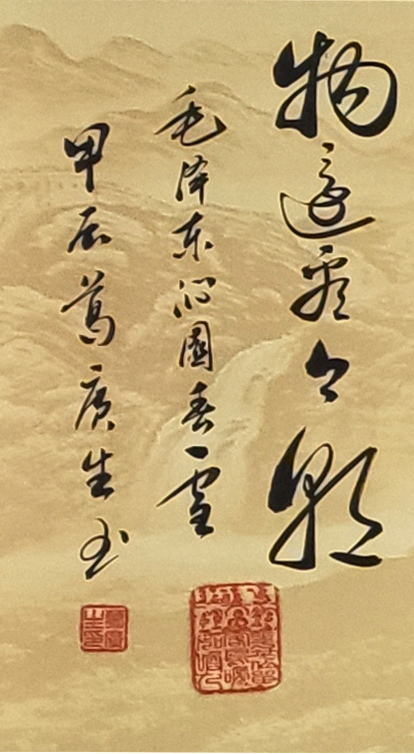 物还看今朝
毛泽东沁園春雪
甲辰葛广生书